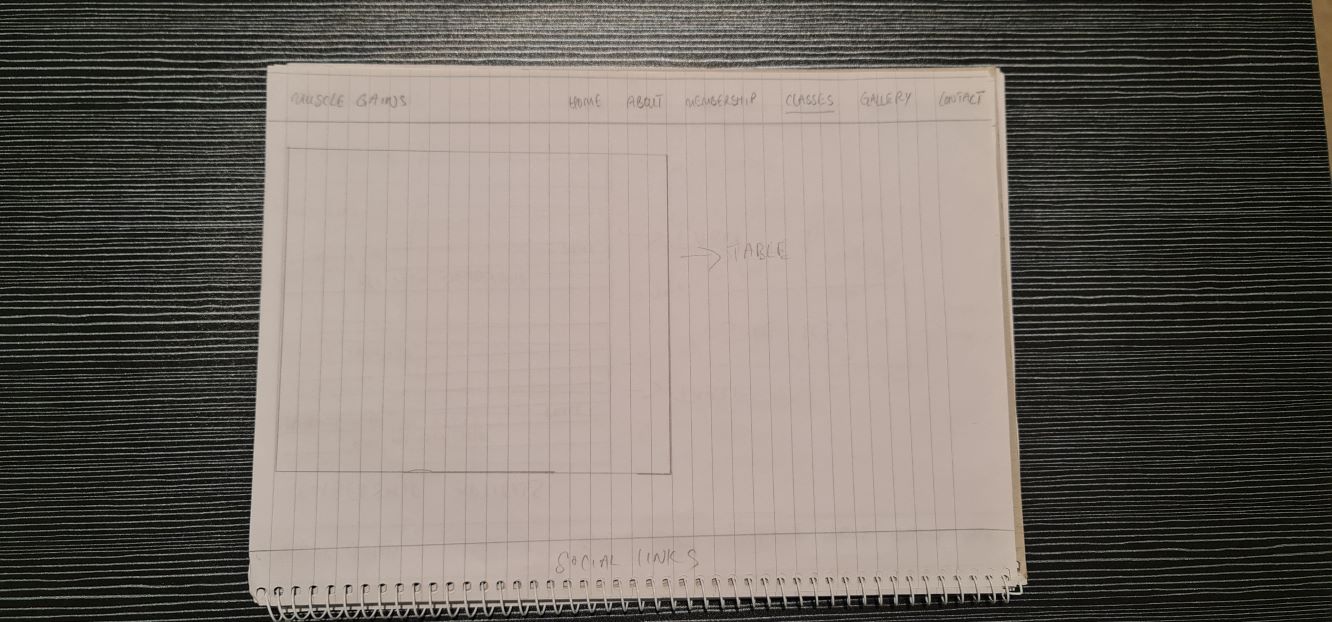 MUSCLE GAINS HOME ABOUT MEMBERSHIP CLASSES GALLERY CONTACT
→ TABLE
SOCIAL LINKS